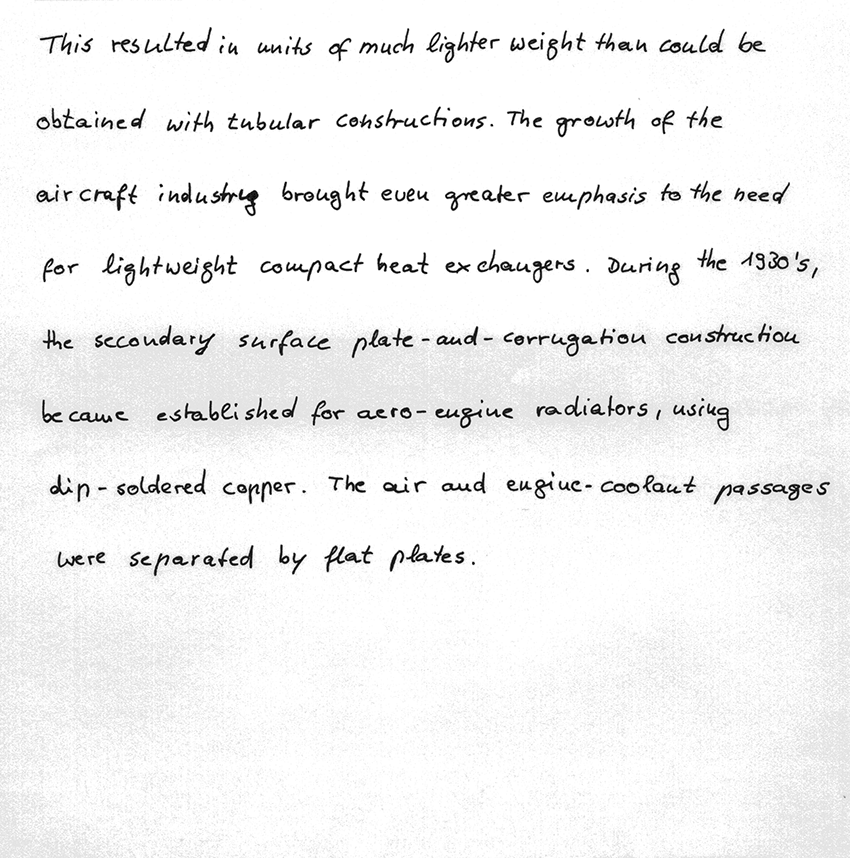 This resulted in units of much lighter weight than could be
obtained with tubular constructions. The growth of the
aircraft industry brought even greater emphasis to the need
for lightweight compact heat exchangers. During the 1930's,
the secondary surface plate-and-corrugation construction
became established for aero-engine radiators, using
dip-soldered copper. The air and engine-coolant passages
were separated by flat plates.